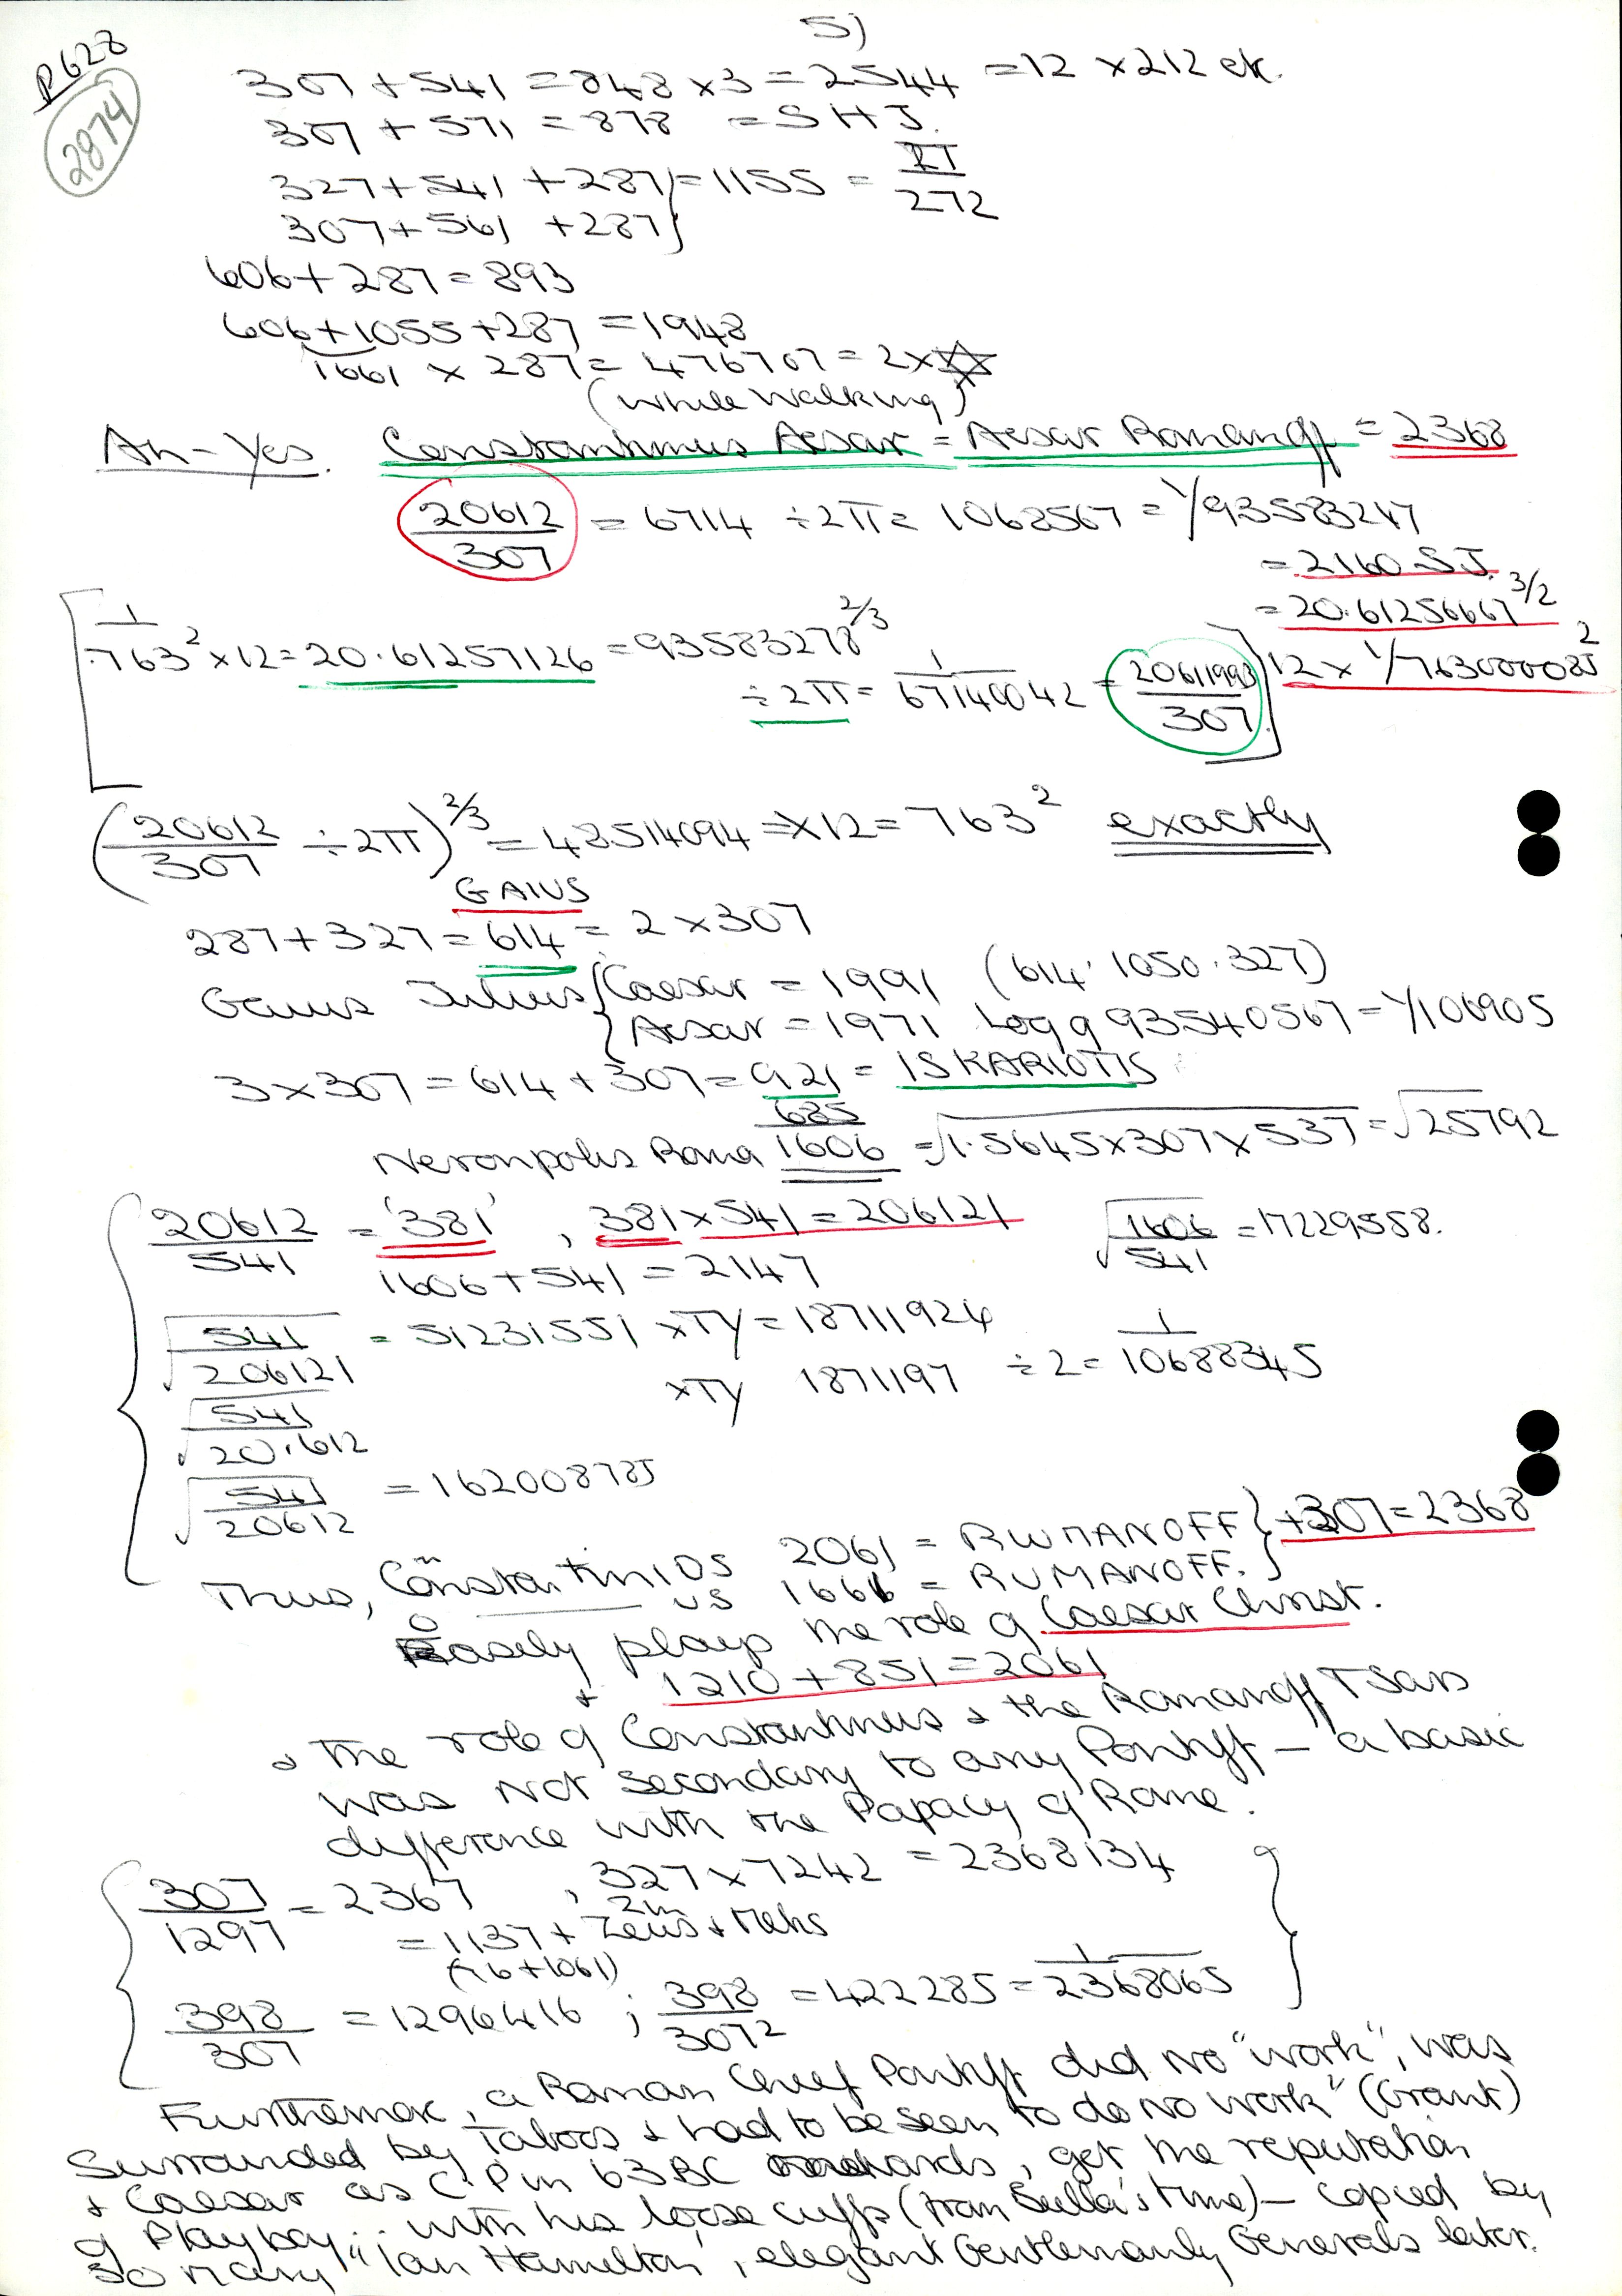 5)
P628
2874
307 + 541 = 848 × 3 = 2544 = 12 × 212 etc.
307 + 571 = 878 = S H J.
327 + 541 + 287 } = 1155 = II/272
307 + 561 + 287 }
606 + 287 = 893
606 + 1055 + 287 = 1948
1661 × 287 = 476707 = 2 × ✡
(while walking)
Ah - Yes. Constantinus Aesar = Aesar Romanoff = 2368
20612/307 = 6714 ÷ 2π = 1068567 = 1/93583247
= 2160 SJ.
= 20.61256667^3/2
[ 1/.763² × 12 = 20.61257126 = 93583278^2/3
÷ 2π = 1/67140042 = 20611993/307 ] 12 × 1/763000085²
(20612/307 ÷ 2π)^2/3 = 48514094 = × 12 = 763² exactly
GAIUS
287 + 327 = 614 = 2 × 307
Gaius Julius { Caesar = 1991 (614. 1050. 327)
{ Aesar = 1971 Log of 93540567 = 1/106905
3 × 307 = 614 + 307 = 921 = ISKARIOTIS
685
Neronpolis Roma 1606 = √1.5645 × 307 × 537 = √25792
20612/541 = '381' , 381 × 541 = 206121 √1606/541 = 17229558.
1606 + 541 = 2147
√541/206121 = 51231551 × TY = 18711924
× TY 1871197 ÷ 2 = 1/10688345
√541/20.612
√541/20612 = 162008785
Thus, Constantin IOS 2061 = RWMANOFF } + 307 = 2368
US 1661 = RUMANOFF. }
Easely plays the role of Caesar Christ.
1210 + 851 = 2061
& the role of Constantinus & the Romanoff Tsars
was not secondary to any Pontiff - a basic
difference with the Papacy of Rome.
307/1297 = 2367 , 327 × 7242 = 2368134
= 1137 + Zeus & Metis
(76 + 1061)
398/307 = 1296416 ; 398/307² = 422285 = 1/2368065
Furthermore, a Roman Chief Pontiff did no "work", was
surrounded by Taboos & had to be seen to do no work" (Grant)
& Caesar as C.P in 63BC onwards, get the reputation
of Playboy.. with his loose cuffs (from Sulla's time) - copied by
so many "Ian Hamilton", elegant Gentlemanly Generals later.